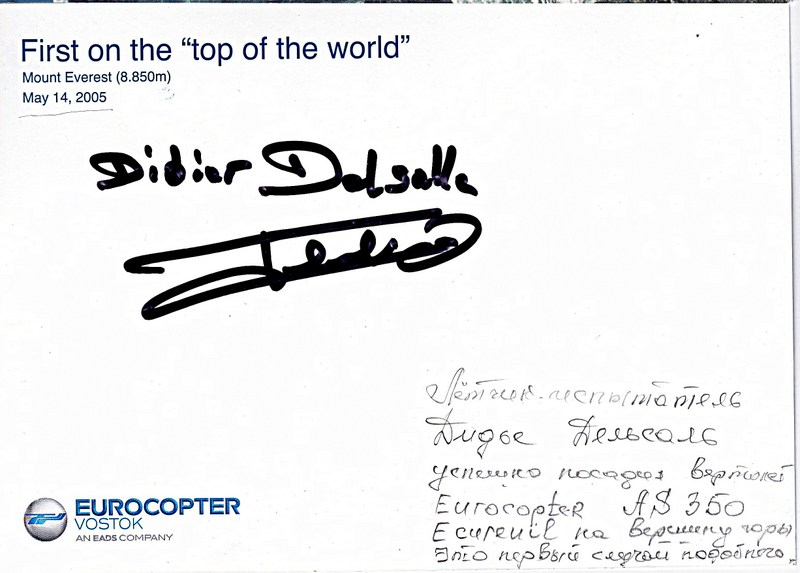 First on the “top of the world”
Mount Everest (8.850m)
May 14, 2005
Didier Delsalle
Лётчик-испытатель
Дидье Дельсаль
успешно посадил вертолёт
Eurocopter AS 350
Ecureuil на вершину горы
Это первый случай подобного
EUROCOPTER
VOSTOK
AN EADS COMPANY